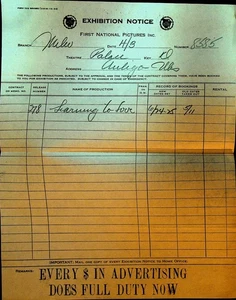 EXHIBITION NOTICE
FIRST NATIONAL PICTURES INC.
BRANCH Milw DATE 4/3 NUMBER
THEATRE Palace KEY
ADDRESS Antigo Wis
THE FOLLOWING PRODUCTIONS, SUBJECT TO THE APPROVAL AND THE TERMS OF THE CONTRACT COVERING THEM, HAVE BEEN BOOKED
TO YOU FOR EXHIBITION AS INDICATED, SUBJECT TO CHANGE IN CASE OF EMERGENCY:
CONTRACT NUMBER NAME OF PRODUCTION RECORD OF BOOKINGS RENTAL
278 Learning to Love
IMPORTANT: MAIL ONE COPY OF EVERY EXHIBITION NOTICE TO HOME OFFICE
REMARKS:
EVERY $ IN ADVERTISING
DOES FULL DUTY NOW